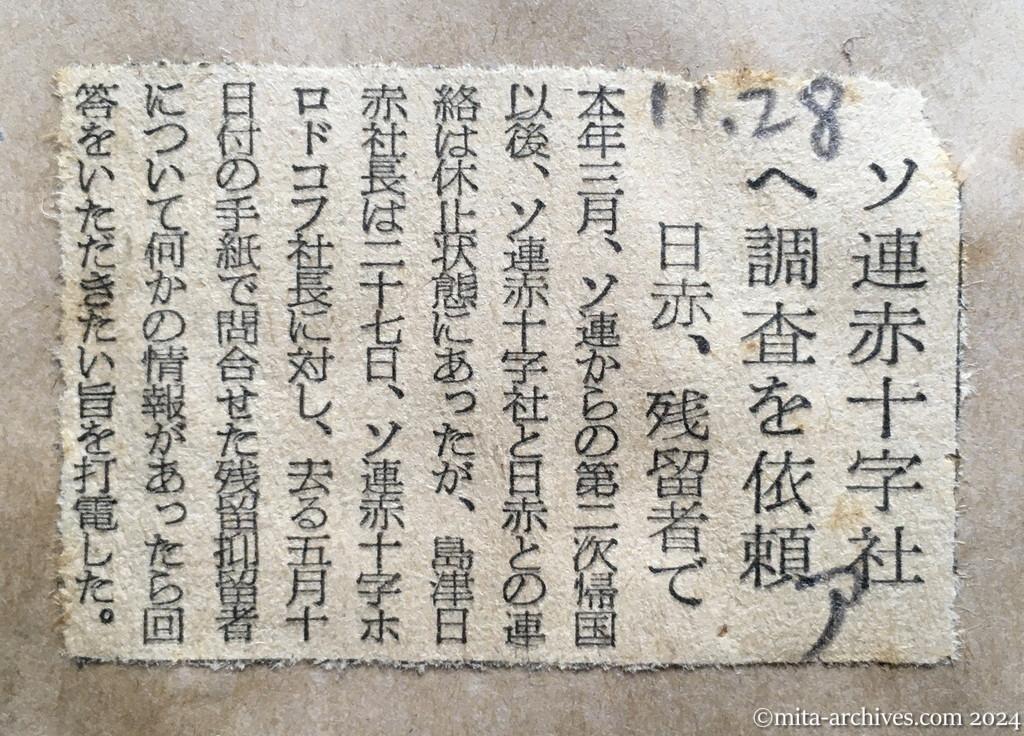 11.28
ソ連赤十字社
へ調査を依頼
日赤、残留者で
本年三月、ソ連からの第二次帰国
以後、ソ連赤十字社と日赤との連
絡は休止状態にあったが、島津日
赤社長は二十七日、ソ連赤十字ホ
ロドコフ社長に対し、去る五月十
日付の手紙で問合せた残留抑留者
について何かの情報があったら回
答をいただきたい旨を打電した。
©mita-archives.com 2024